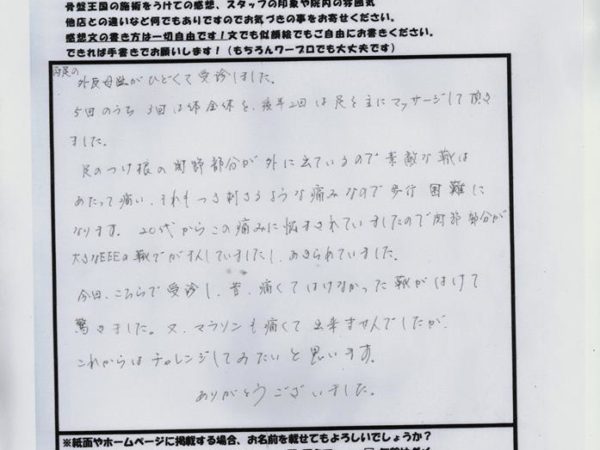 骨盤王国の施術をうけての感想、スタッフの印象や院内の雰囲気
他店との違いなど何でもありですのでお気づきの事をお寄せください。
感想文の書き方は一切自由です!文でも似顔絵でもご自由にお書きください。
できれば手書きでお願いします!(もちろんワープロでも大丈夫です)
両足の
外反母趾がひどくて受診しました。
5回のうち3回は体全体を、後半2回は足を主にマッサージして頂き
ました。
足のつけ根の関節部分が外に出ているので素敵な靴は
あたって痛い、それもつき刺さるような痛みなので歩行困難に
なります。20代からこの痛みに悩まされていましたので関節部分が
大きなEEEの靴でがまんしていましたし、あきらめていました。
今回、こちらで受診し、昔、痛くてはけなかった靴がはけて
驚きました。又、マラソンも痛くて出来ませんでしたが、
これからはチャレンジしてみたいと思います。
ありがとうございました。
※紙面やホームページに掲載する場合、お名前を載せてもよろしいでしょうか?